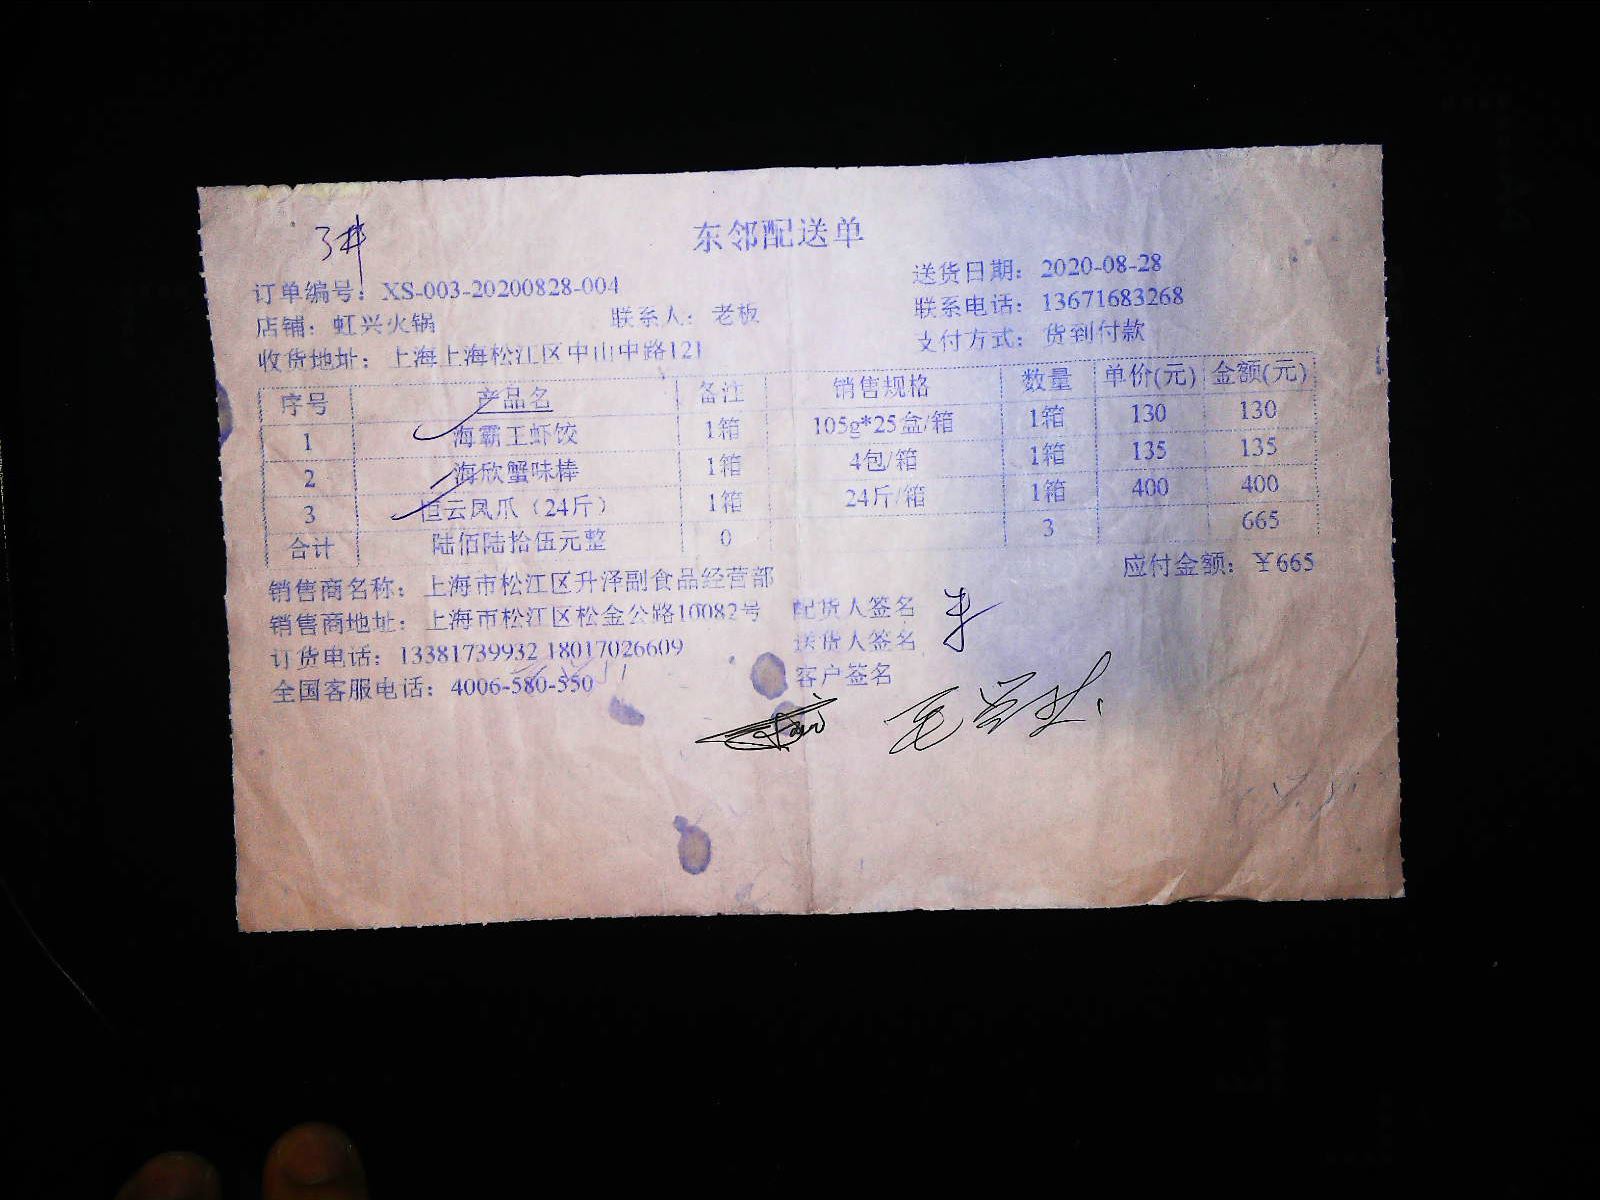 3#
东邻配送单
订单编号：XS-003-20200828-004 送货日期：2020-08-28
店铺：虹兴火锅 联系人：老板 联系电话：13671683268
收货地址：上海上海松江区中山中路121 支付方式：货到付款
序号 产品名 备注 销售规格 数量 单价(元) 金额(元)
1 海霸王虾饺 1箱 105g*25盒/箱 1箱 130 130
2 海欣蟹味棒 1箱 4包/箱 1箱 135 135
3 恒云凤爪（24斤） 1箱 24斤/箱 1箱 400 400
合计 陆佰陆拾伍元整 0 3 665
销售商名称：上海市松江区升泽副食品经营部 应付金额：￥665
销售商地址：上海市松江区松金公路10082号 配货人签名
订货电话：13381739932 18017026609 送货人签名
全国客服电话：4006-580-550 客户签名